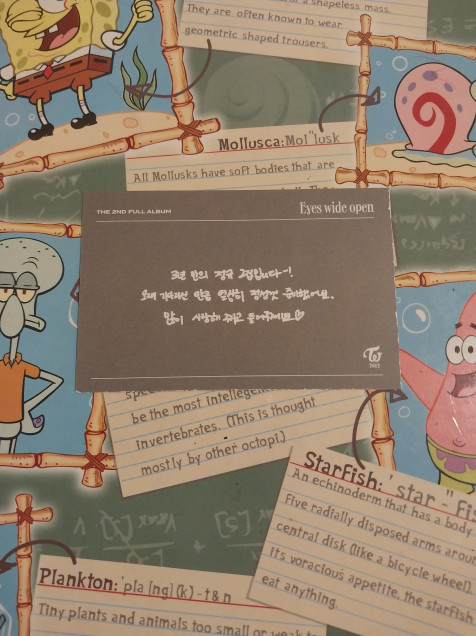 a shapeless mass.
They are often known to wear
geometric shaped trousers.
Mollusca: Mol"lusk
All Mollusks have soft bodies that are
THE 2ND FULL ALBUM
Eyes wide open
3년 만의 정규 2집입니다~!
오래 기다리신 만큼 열심히 정성껏 준비했어요.
많이 사랑해 주시고 들어주세요♡
be the most intellege
invertebrates. (This is thought
mostly by other octopi.)
Starfish: 'star-"fis
An echinoderm that has a body
Five radially disposed arms arou
central disk (like a bicycle wheel)
its voracious appetite, the starfish
eat anything.
Plankton: 'pla [ng] (k) - t & n
Tiny plants and animals too small or weak to